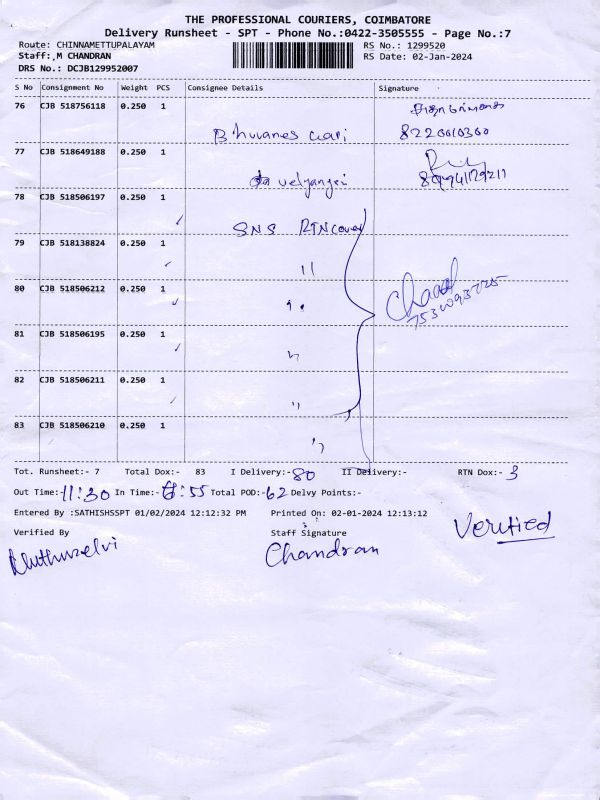 THE PROFESSIONAL COURIERS, COIMBATORE
Delivery Runsheet - SPT - Phone No.:0422-3505555 - Page No.:7
Route: CHINNAMETTUPALAYAM RS No.: 1299520
Staff: M CHANDRAN RS Date: 02-Jan-2024
DRS No.: DCJB129952007
S No Consignment No Weight PCS Consignee Details Signature
76 CJB 518756118 0.250 1
77 CJB 518649188 0.250 1
78 CJB 518506197 0.250 1
SNS RTN cover
79 CJB 518138824 0.250 1
"
80 CJB 518506212 0.250 1
"
81 CJB 518506195 0.250 1
"
82 CJB 518506211 0.250 1
"
83 CJB 518506210 0.250 1
"
Tot. Runsheet:- 7 Total Dox:- 83 I Delivery:- 80 II Delivery:- RTN Dox:- 3
Out Time:- 11:30 In Time:- :55 Total POD:- 62 Delvy Points:-
Entered By :SATHISHSSPT 01/02/2024 12:12:32 PM Printed On: 02-01-2024 12:13:12
Verified By Staff Signature Verified
Muthuselvi Chandran